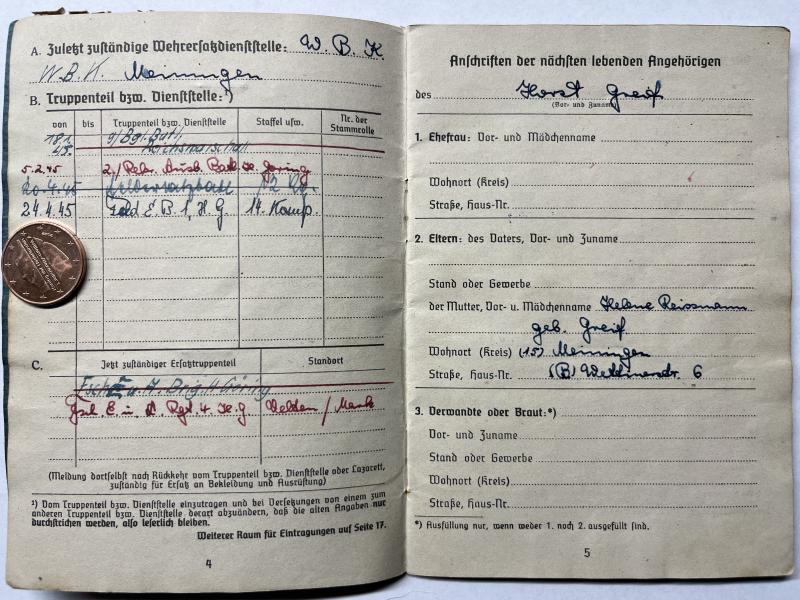 A. Zuletzt zuständige Wehrersatzdienststelle: W. B. K.
W.B.K. Meiningen
B. Truppenteil bzw. Dienststelle:¹)
von bis Truppenteil bzw. Dienststelle Staffel usw. Nr. der Stammrolle
18.1.
45. Reichsmarschall
5.2.45
20.4.45 Feldersatzbatl
24.4.45 Feld E. B. 1, H G 14. Komp.
C. Jetzt zuständiger Ersatztruppenteil Standort
Rgt. 4 H. G Velden /
(Meldung dortselbst nach Rückkehr vom Truppenteil bzw. Dienststelle oder Lazarett,
zuständig für Ersatz an Bekleidung und Ausrüstung)
¹) Vom Truppenteil bzw. Dienststelle einzutragen und bei Versetzungen von einem zum
anderen Truppenteil bzw. Dienststelle derart abzuändern, daß die alten Angaben nur
durchstrichen werden, also leserlich bleiben.
Weiterer Raum für Eintragungen auf Seite 17.
4
Anschriften der nächsten lebenden Angehörigen
des Horst Greif
(Vor- und Zuname)
1. Ehefrau: Vor- und Mädchenname
Wohnort (Kreis)
Straße, Haus-Nr.
2. Eltern: des Vaters, Vor- und Zuname
Stand oder Gewerbe
der Mutter, Vor- u. Mädchenname Helene Reissmann
geb. Greif
Wohnort (Kreis) (15) Meiningen
Straße, Haus-Nr. 6
3. Verwandte oder Braut:*)
Vor- und Zuname
Stand oder Gewerbe
Wohnort (Kreis)
Straße, Haus-Nr.
*) Ausfüllung nur, wenn weder 1. noch 2. ausgefüllt sind.
5